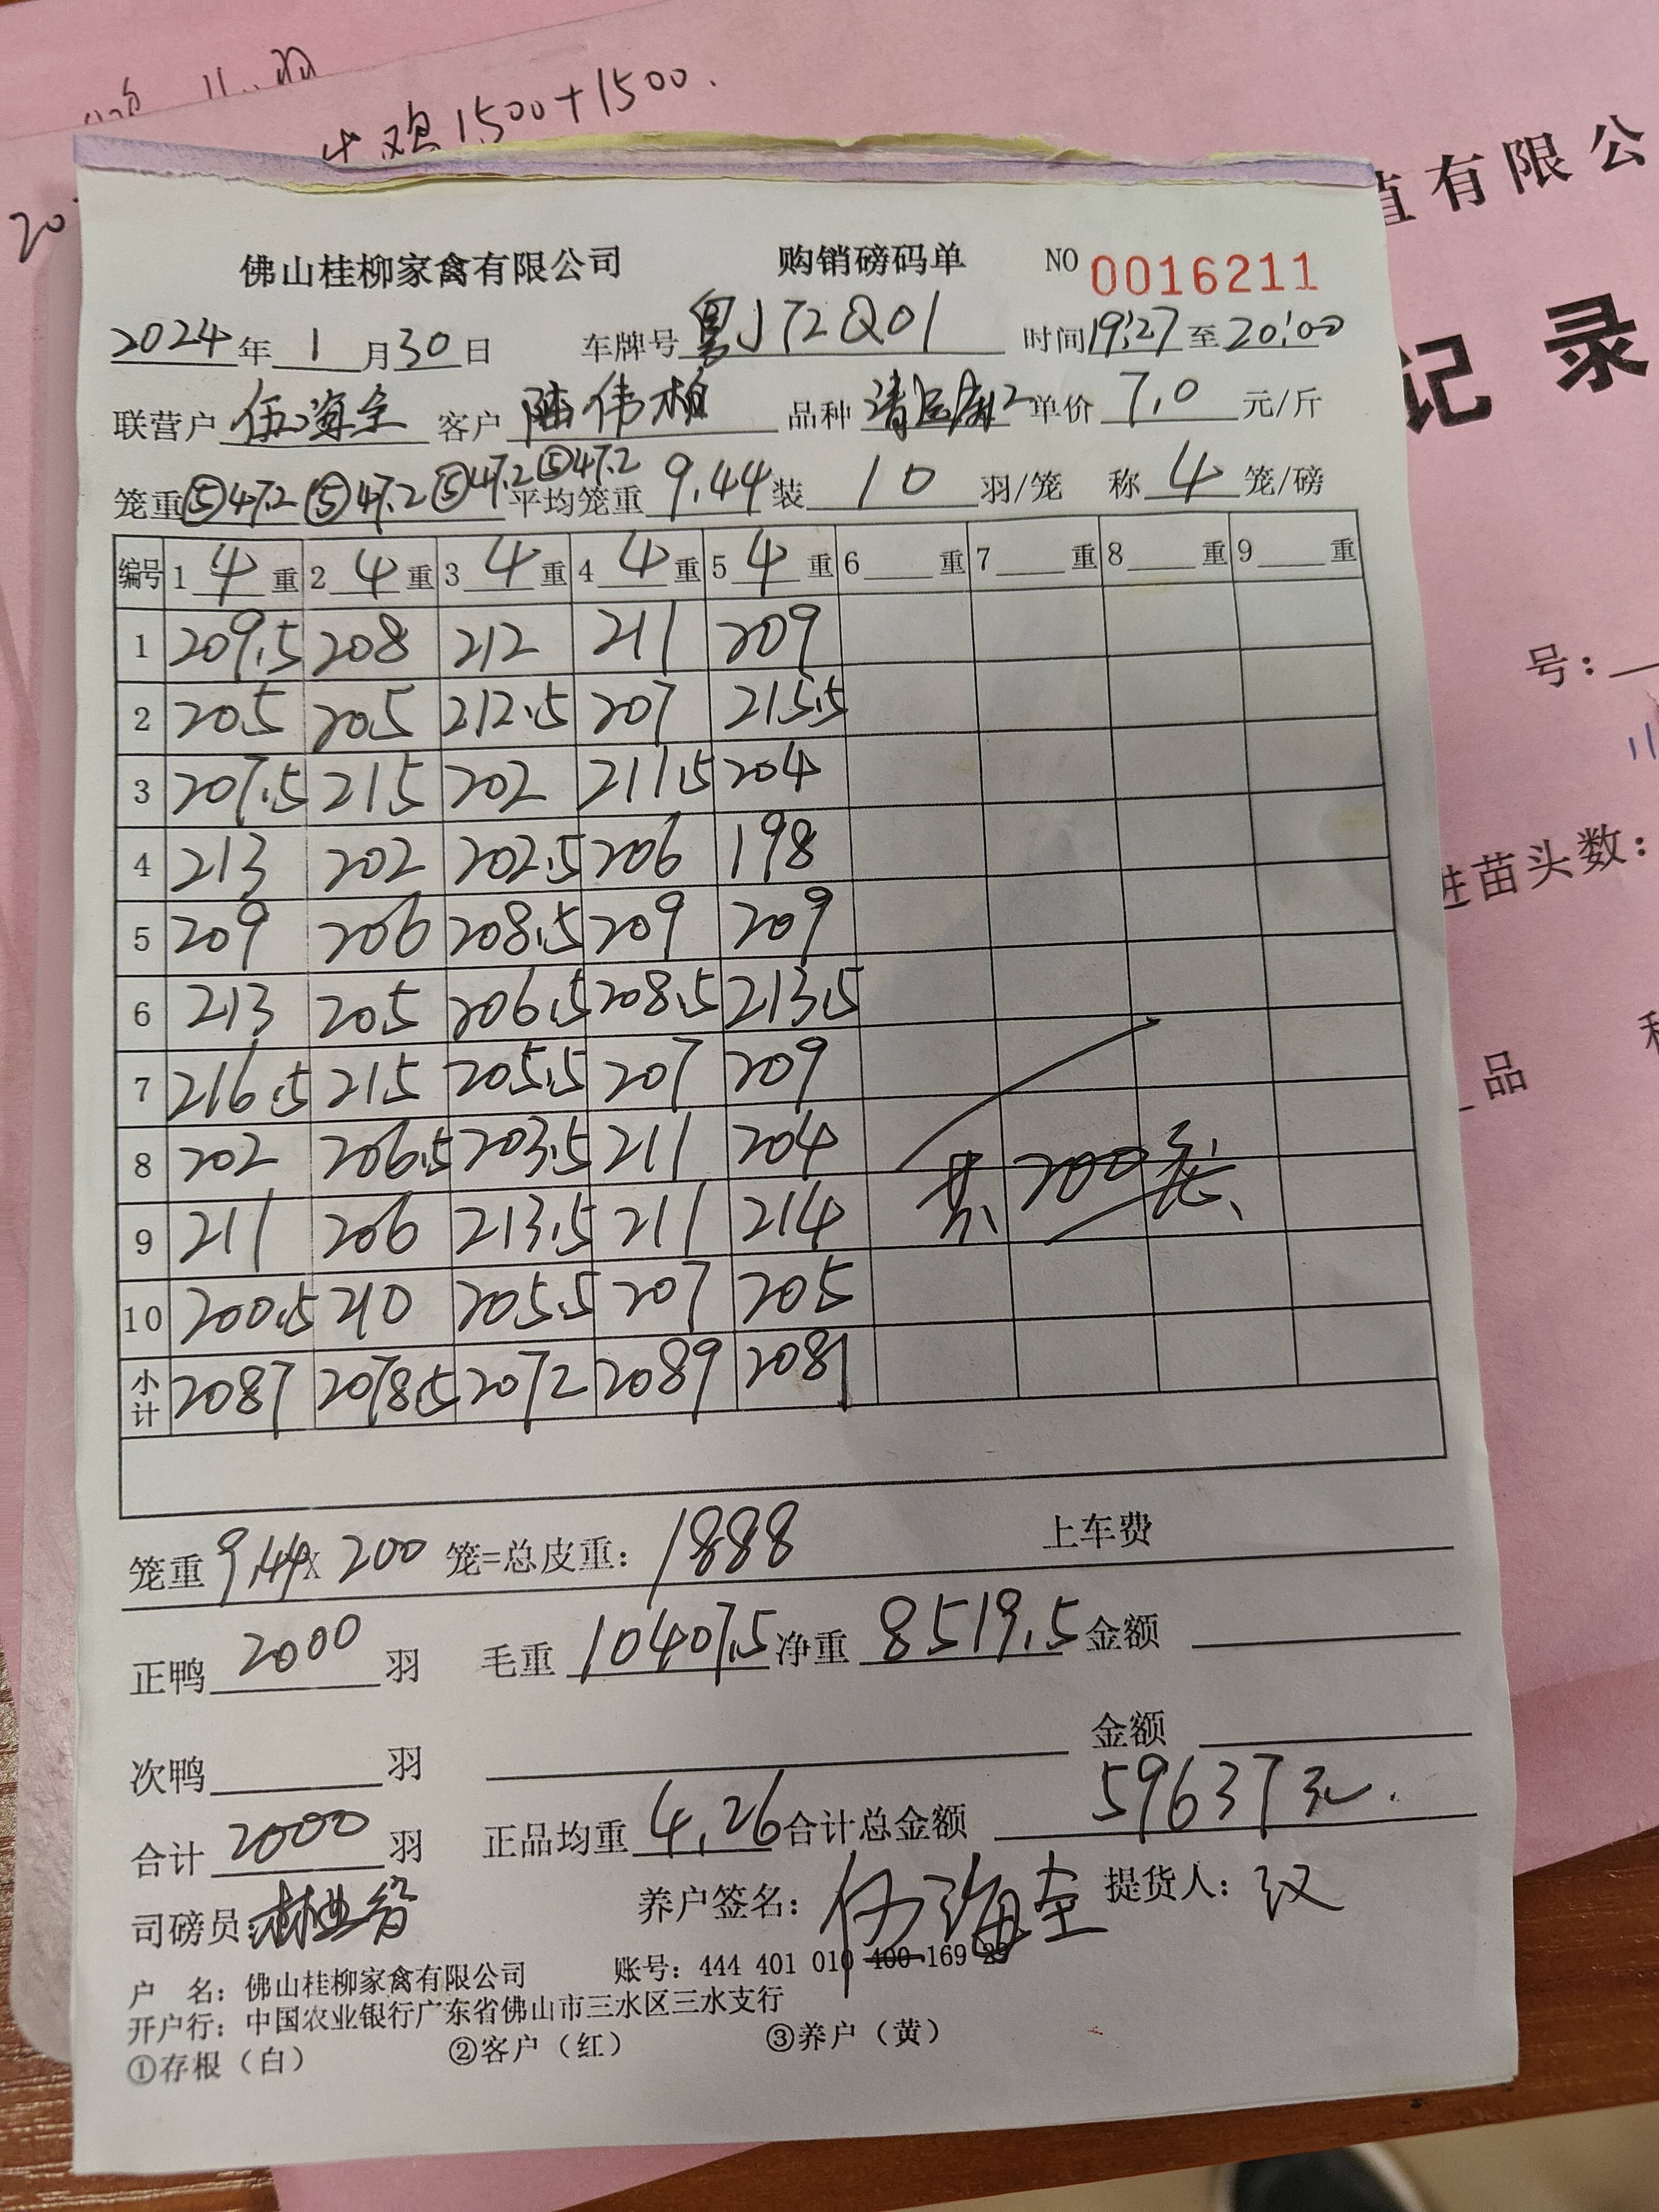 牛鸡1500+1500.
20
值有限公
记录
号:
进苗头数:
品
佛山桂柳家禽有限公司 购销磅码单 NO 0016211
2024年1月30日 车牌号 粤J72Q01 时间19:27至20:00
联营户 伍海全 客户 陆伟柏 品种 单价 7.0 元/斤
笼重⑤47.2 ⑤47.2 ⑤47.2 ⑤47.2 平均笼重 9.44 装 10 羽/笼 称 4 笼/磅
编号 1 4 重 2 4 重 3 4 重 4 4 重 5 4 重 6 重 7 重 8 重 9 重
1 209.5 208 212 211 209
2 205 205 212.5 207 215.5
3 207.5 215 202 211.5 204
4 213 202 202.5 206 198
5 209 206 208.5 209 209
6 213 205 206.5 208.5 213.5
7 216.5 215 205.5 207 209
8 202 206.5 203.5 211 204
9 211 206 213.5 211 214
共200笼
10 200.5 210 205.5 207 205
小计 2087 2078.5 2072 2089 2081
笼重 9.44 X 200 笼=总皮重: 1888 上车费
正鸭 2000 羽 毛重 10407.5 净重 8519.5 金额
次鸭 羽 金额
合计 2000 羽 正品均重 4.26 合计总金额 59637元.
司磅员 养户签名: 伍海全 提货人:
户 名: 佛山桂柳家禽有限公司 账号: 444 401 010 400 169 29
开户行: 中国农业银行广东省佛山市三水区三水支行
①存根(白) ②客户(红) ③养户(黄)